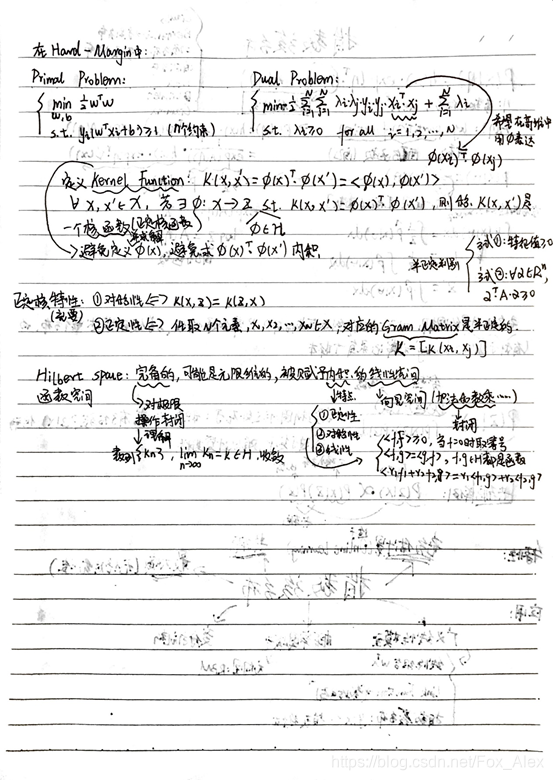 在Hard-Margin中:
Primal Problem: Dual Problem:
min w,b ½wᵀw
s.t. yᵢ(wᵀxᵢ+b)≥1 (N个约束)
min λ ½ Σᵢ₌₁ᴺ Σⱼ₌₁ᴺ λᵢλⱼyᵢyⱼxᵢᵀxⱼ + Σᵢ₌₁ᴺ λᵢ
s.t. λᵢ≥0 for all i=1,2,…,N
希望在高维中
用φ表达
φ(xᵢ)ᵀφ(xⱼ)
定义 Kernel Function: K(x,x')=φ(x)ᵀφ(x')=<φ(x),φ(x')>
∀x,x'∈X, 若∃φ: X→Z s.t. K(x,x')=φ(x)ᵀ·φ(x'), 则称 K(x,x')是
一个核函数 (正定核函数) φ∈H
避免定义φ(x), 避免求φ(x)ᵀφ(x')内积.
半正定判别
方式①: 特征值≥0
方式②: ∀α∈Rⁿ,
αᵀA·α≥0
正定核特性: ①对称性⟺K(x,z)=K(z,x)
②正定性⟺任取N个元素, x₁,x₂,…,xₙ∈X 对应的Gram Matrix是半正定的.
K=[K(xᵢ,xⱼ)]
Hilbert space: 完备的, 可能是无限维的, 被赋予内积的线性空间
函数空间
对极限
操作封闭
特点
向量空间 (加法和数乘……)
封闭
①正定性
②对称性
③线性
数列{Kn}, lim n→∞ Kn=k∈H, 收敛
<f,f>≥0, 当f=0时取等号
<f,g>=<g,f>, f,g∈H都是函数
<r₁f₁+r₂f₂,g>=r₁<f₁,g>+r₂<f₂,g>
https://blog.csdn.net/Fox_Alex